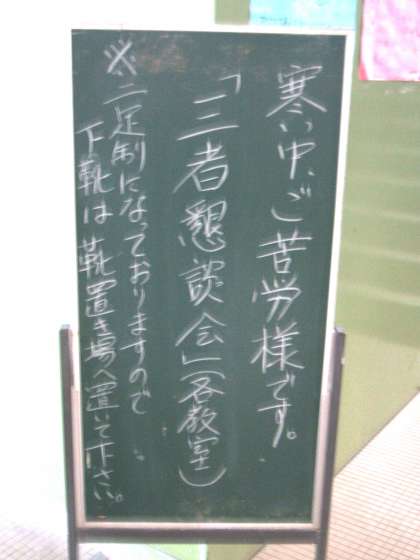 寒い中、ご苦労様です。
「三者懇談会」(各教室)
※二足制になっておりますので
下靴は靴置き場へ置いて下さい。